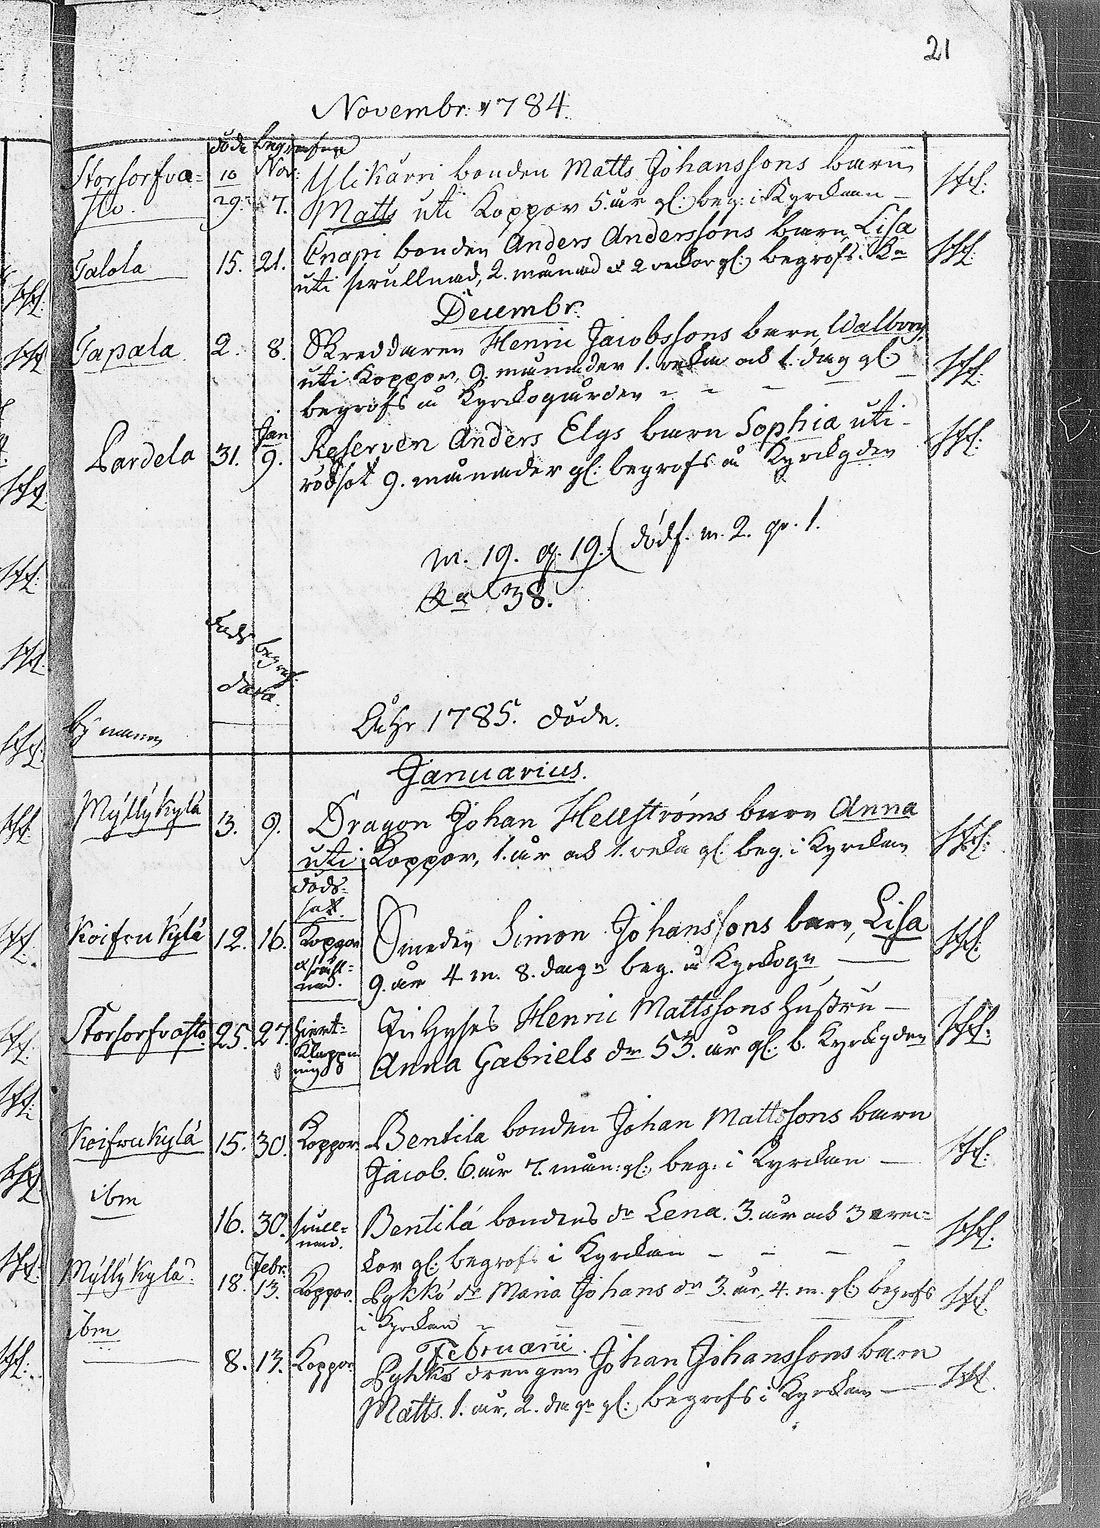 21
Novembr: 1784.
döde begrafne
Storsorfva= 10 Nov: Ylikärri bonden Matts Johanssons barn
sto. 29. 7. Matts uti Koppor 5. år gl: beg: i Kyrckan
Talola 15. 21. Enapi bonden Anders Anderssons barn Lisa
uti strullnad, 2. månad & 2 veckor gl: begrofs
Decembr:
Tapala 2. 8. Skreddaren Henric Jacobssons barn, Walborg,
uti Koppor, 9. månader 1. veka och 1. dag gl:
begrofs å Kyrckogården
Jan
Pardela 31. 9. Reserven Anders Elgs barn Sophia uti
rödsot 9. månader gl: begrofs å Kyrckgden
m. 19. q. 19. dödf. m. 2. qv. 1.
Sa 38.
döds begraf.
data.
by namn
Åhr 1785. döde.
Januarius.
Mÿllÿkylä 3. 9. Dragon Johan Hellströms barn Anna
uti Koppor, 1. år och 1. veka gl. beg. i Kyrckan
döds-
sak.
Koifvukylä 12. 16. Koppor Smeden Simon Johanssons barn, Lisa
9. år 4. m. 8. dagr beg. å Kyrckogn
Storsorfvasto 25. 27. hiert- Inhyses Henric Mattssons hustru
Klappning Anna Gabriels dr 53. år gl: b. Kyrckgden
Koifvukylä 15. 30. Koppor. Bentila bonden Johan Mattssons barn
Jacob. 6. år 7. mån: gl: beg: i Kyrckan
ibm 16. 30. Bentilä bondens dr Lena. 3. år och 3 vec-
kor gl: begrofs i Kyrckan
Febr:
Mÿllÿkylä 18. 13. Koppor. Pykkö dr Maria Johans dr 3. år, 4. m. gl: begrofs
i Kyrckan
Februarii
ibm 8. 13. Koppor Pykkö drengen Johan Johanssons barn
Matts. 1. år, 2. dagr gl: begrofs i Kyrckan